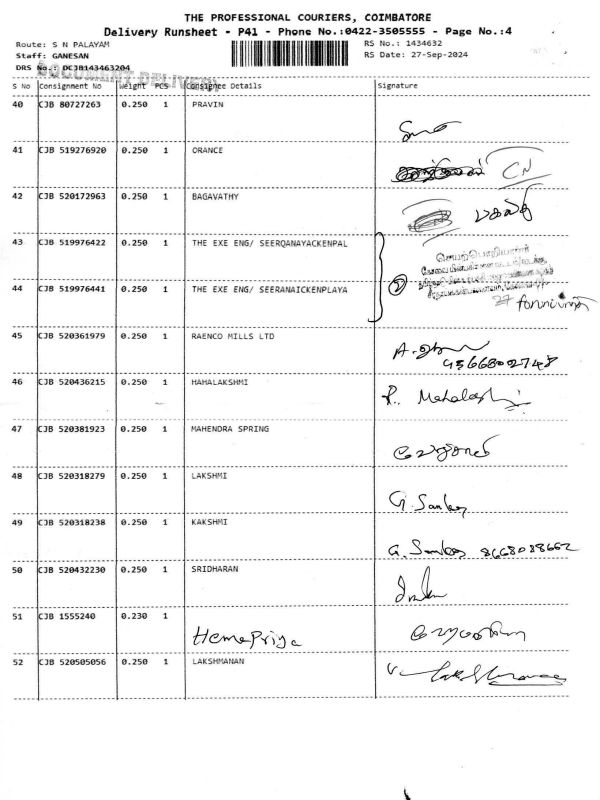 THE PROFESSIONAL COURIERS, COIMBATORE
Delivery Runsheet - P41 - Phone No.:0422-3505555 - Page No.:4
Route: S N PALAYAM RS No.: 1434632
Staff: GANESAN RS Date: 27-Sep-2024
DRS No.: DCJB143463204
DOCUMENT DELIVERY
S No Consignment No Weight PCS Consignee Details Signature
40 CJB 80727263 0.250 1 PRAVIN
41 CJB 519276920 0.250 1 ORANCE CN
42 CJB 520172963 0.250 1 BAGAVATHY பகவதி
43 CJB 519976422 0.250 1 THE EXE ENG/ SEERQANAYACKENPAL
செயற்பொறியாளர்
44 CJB 519976441 0.250 1 THE EXE ENG/ SEERANAICKENPLAYA
②
45 CJB 520361979 0.250 1 RAENCO MILLS LTD
9566802748
46 CJB 520436215 0.250 1 HAHALAKSHMI R. Mahalakshmi
47 CJB 520381923 0.250 1 MAHENDRA SPRING
48 CJB 520318279 0.250 1 LAKSHMI
G. Sankar
49 CJB 520318238 0.250 1 KAKSHMI
G. Sankar 8668088662
50 CJB 520432230 0.250 1 SRIDHARAN
51 CJB 1555240 0.230 1
HemaPriya
52 CJB 520505056 0.250 1 LAKSHMANAN